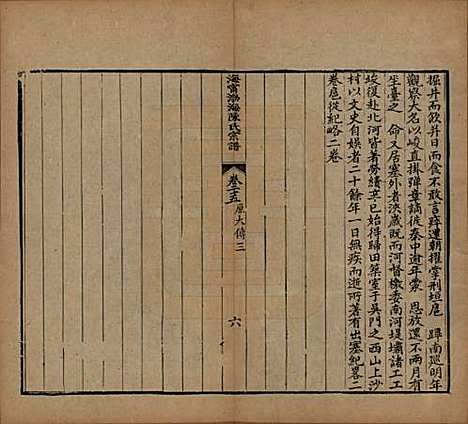 掘井而飲并日而食不敢言疏遷朝擢掌刑垣扈　蹕南巡明年
觀察大名以峻直掛彈章謫從秦中逾年蒙　恩放還不兩月有
生臺之　命又居塞外者浹歲既而河督檄委南河堤壩諸工工
竣復赴北河皆著勞績辛巳始得歸田築室于吳門之西山上沙
村以文史自娛者二十餘年一日無疾而逝所著有出塞紀畧二
卷扈從紀略二卷
海甯渤海陳氏宗譜
卷二十五
歷大傳三
六